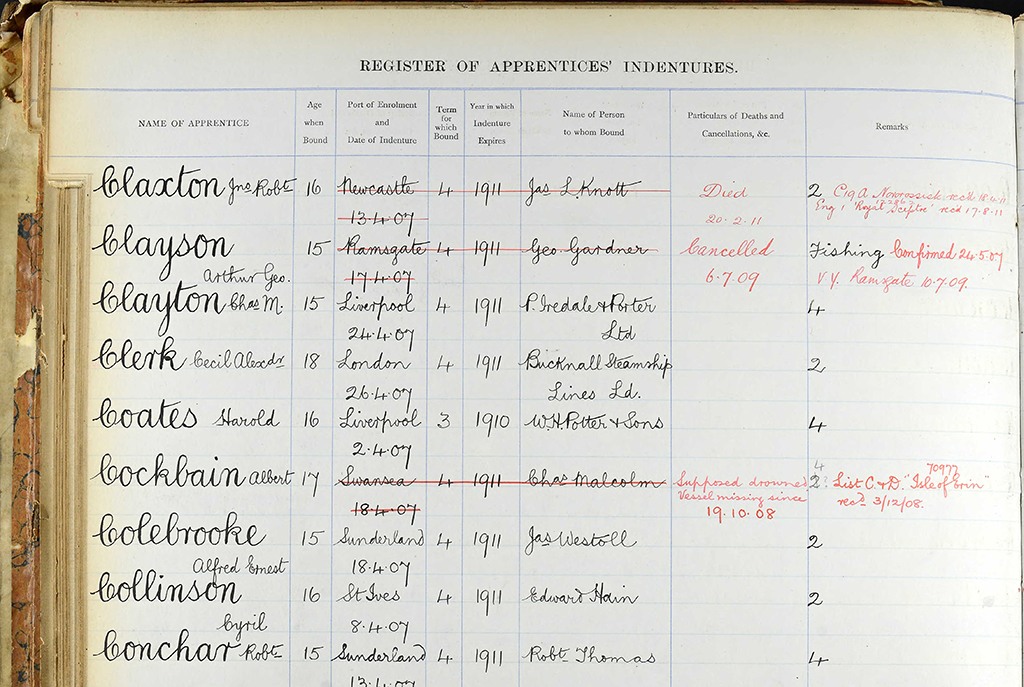 REGISTER OF APPRENTICES' INDENTURES.
NAME OF APPRENTICE Age when Bound Port of Enrolment and Date of Indenture Term for which Bound Year in which Indenture Expires Name of Person to whom Bound Particulars of Deaths and Cancellations, &c. Remarks
Claxton Jno Robt 16 Newcastle 4 1911 Jas L. Knott Died 2 C19A Novorossick recd 18.6.11
13.4.07 20.2.11 Eng 1 'Royal Sceptre' recd 17.8.11
Clayson 15 Ramsgate 4 1911 Geo. Gardner Cancelled Fishing Confirmed 24.5.07
Arthur Geo. 17.4.07 6.7.09 Ramsgate 10.7.09.
Clayton Chas M. 15 Liverpool 4 1911 P. Iredale & Porter 4
24.4.07 Ltd
Clerk Cecil Alexdr 18 London 4 1911 Bucknall Steamship 2
26.4.07 Lines Ld.
Coates Harold 16 Liverpool 3 1910 W.H. Potter & Sons 4
2.4.07
4 70977
Cockbain Albert 17 Swansea 4 1911 Chas Malcolm Supposed drowned 2 List C & D. "Isle of Erin"
18.4.07 Vessel missing since recd 3/12/08.
19.10.08
Colebrooke 15 Sunderland 4 1911 Jas Westoll 2
Alfred Ernest 18.4.07
Collinson 16 St Ives 4 1911 Edward Hain 2
Cyril 8.4.07
Conchar Robt 15 Sunderland 4 1911 Robt Thomas 4
13.4.07